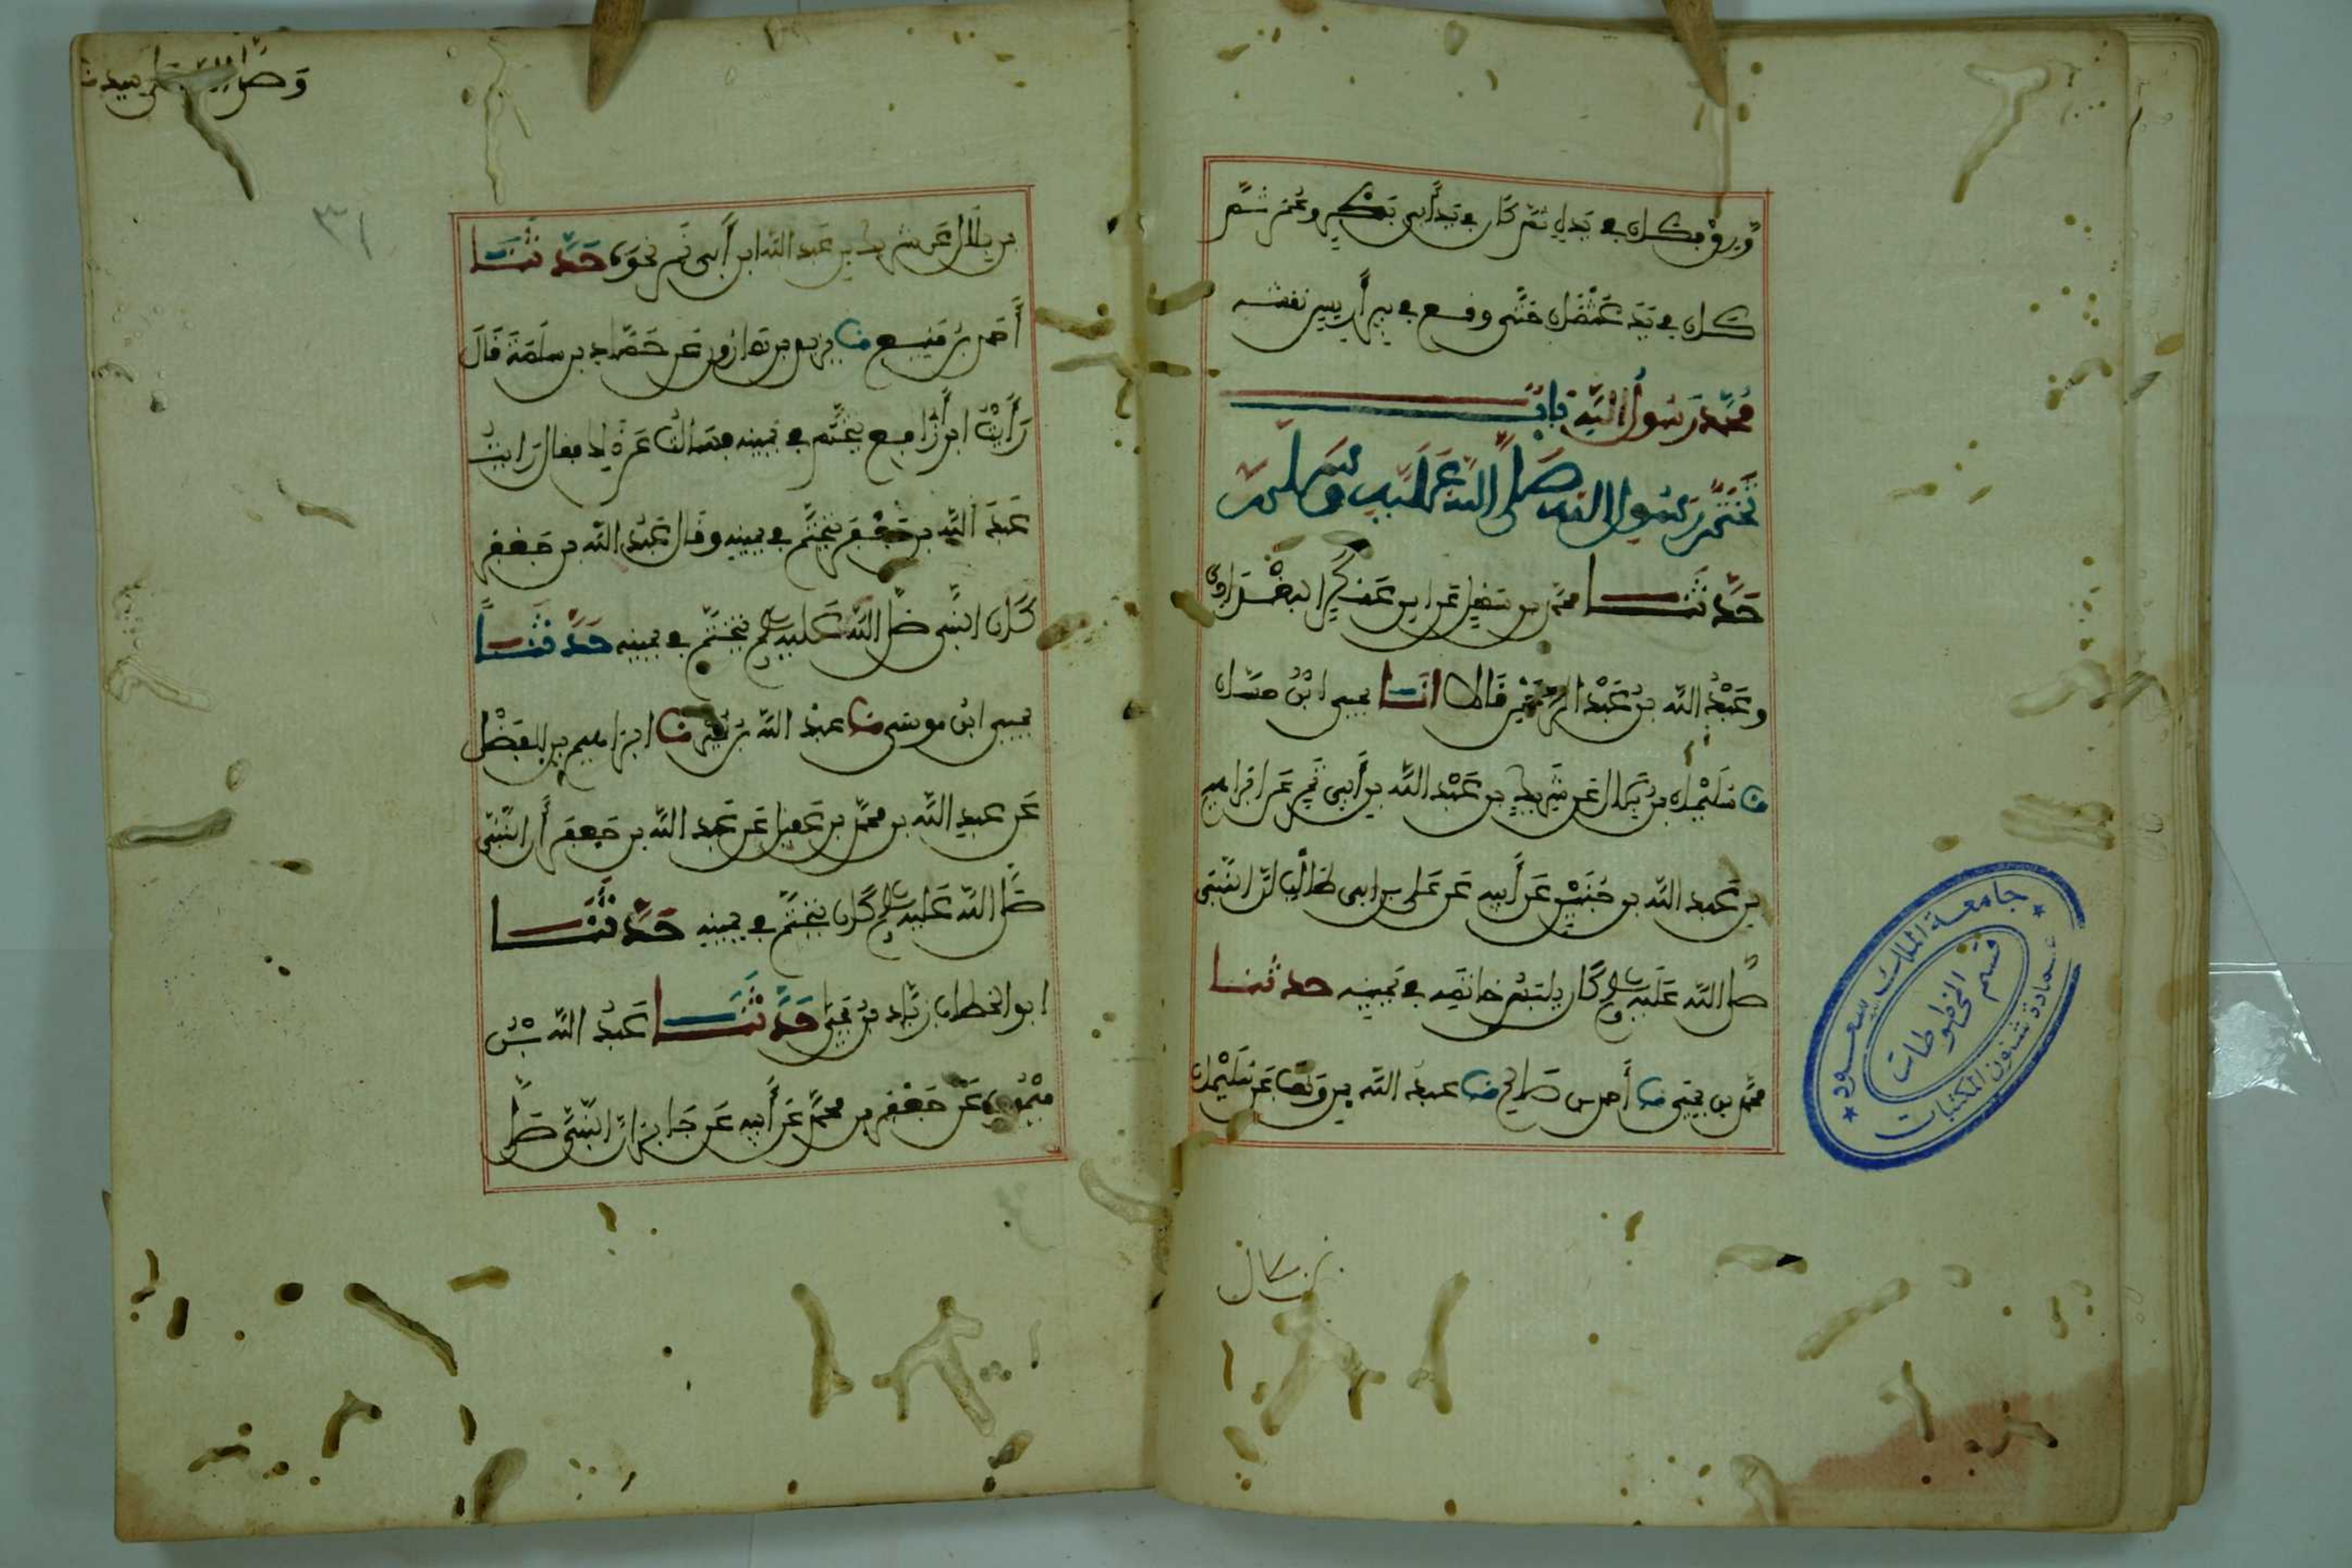 ورق فكان في يده ثم كان في يد أبي بكر وعمر ثم
كان في يد عثمان حتى وقع في بير أريس نقشه
محمد رسول الله باب
تختم رسول الله صلى الله عليه وسلم
حدثنا محمد بن سهل بن عسكر البغدادي
وعبد الله بن عبد الرحمن قالا انا يحيى ابن حسان
نا سليمان بن بلال عن شريك بن عبد الله بن أبي نمر عن ابراهيم
بن عبد الله بن حنين عن أبيه عن علي بن ابي طالب ان النبي
صلى الله عليه وسلم كان يلبس خاتمه في يمينه حدثنا
محمد بن يحيى نا أحمد بن صالح نا عبد الله بن وهب عن سليمان
بن بلال
جامعة الملك سعود
عمادة شئون المكتبات
قسم المخطوطات
وصلى الله على سيدنا
٣١
بن بلال عن شريك بن عبد الله ابن أبي نمر نحوه حدثنا
أحمد بن منيع نا يزيد بن هارون عن حماد بن سلمة قال
رأيت ابن أبي رافع يتختم في يمينه فسالته عن ذلك فقال رأيت
عبد الله بن جعفر يتختم في يمينه وقال عبد الله بن جعفر
كان النبي صلى الله عليه وسلم يتختم في يمينه حدثنا
يحيى ابن موسى نا عبد الله بن نمير نا ابراهيم بن الفضل
عن عبد الله بن محمد بن عقيل عن عبد الله بن جعفر أن النبي
صلى الله عليه وسلم كان يتختم في يمينه حدثنا
ابو الخطاب زياد بن يحيى حدثنا عبد الله بن
ميمون عن جعفر بن محمد عن أبيه عن جابر ان النبي صلى